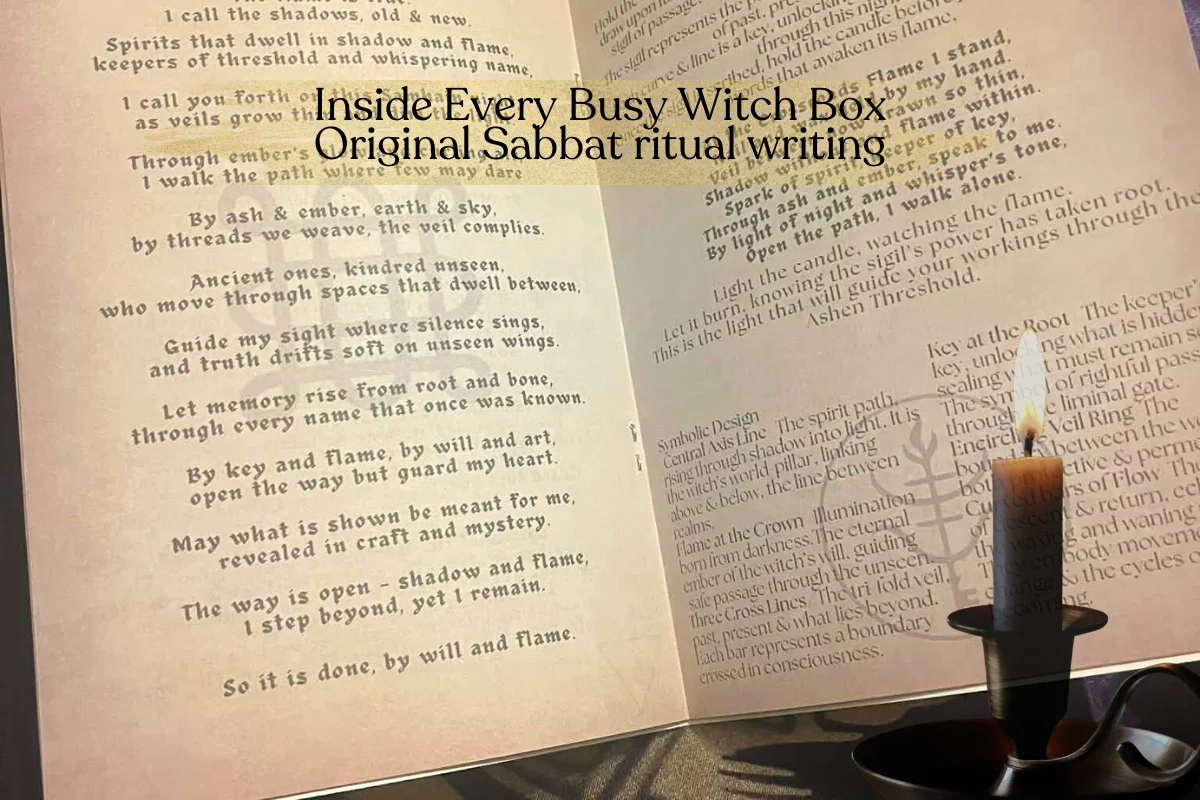 I call the shadows, old & new.
Spirits that dwell in shadow and flame,
keepers of threshold and whispering name,
I call you forth on this
as veils grow
Through ember's
I walk the path where few may dare
By ash & ember, earth & sky,
by threads we weave, the veil complies.
Ancient ones, kindred unseen,
who move through spaces that dwell between,
Guide my sight where silence sings,
and truth drifts soft on unseen wings.
Let memory rise from root and bone,
through every name that once was known.
By key and flame, by will and art,
open the way but guard my heart.
May what is shown be meant for me,
revealed in craft and mystery.
The way is open - shadow and flame,
I step beyond, yet I remain.
So it is done, by will and flame.
Inside Every Busy Witch Box
Original Sabbat ritual writing
Hold the
draw upon
sigil of passage.
The sigil represents the
of past,
curve & line is a key, unlocking
through this night
hold the candle before
words that awaken its flame.
Flame I stand,
by my hand.
Veil drawn so thin,
Shadow flame within.
Spark of spirit, keeper of key,
Through ash and ember, speak to me.
By light of night and whisper's tone,
Open the path, I walk alone.
Light the candle, watching the flame.
Let it burn, knowing the sigil's power has taken root.
This is the light that will guide your workings through the
Ashen Threshold.
Symbolic Design
Central Axis Line The spirit path,
rising through shadow into light. It is
the witch's world pillar, linking
above & below, the line between
realms.
Flame at the Crown Illumination
born from darkness.The eternal
ember of the witch's will, guiding
safe passage through the unseen.
Three Cross Lines The tri fold veil,
past, present & what lies beyond.
Each bar represents a boundary
crossed in consciousness.
Key at the Root The keeper's
key, unlocking what is hidden
sealing what must remain
The symbol of rightful
through the liminal gate.
Encircled Veil Ring The
between the
& perm
of Flow
of descent & return,
the waxing and waning
They embody movement
change & the cycles